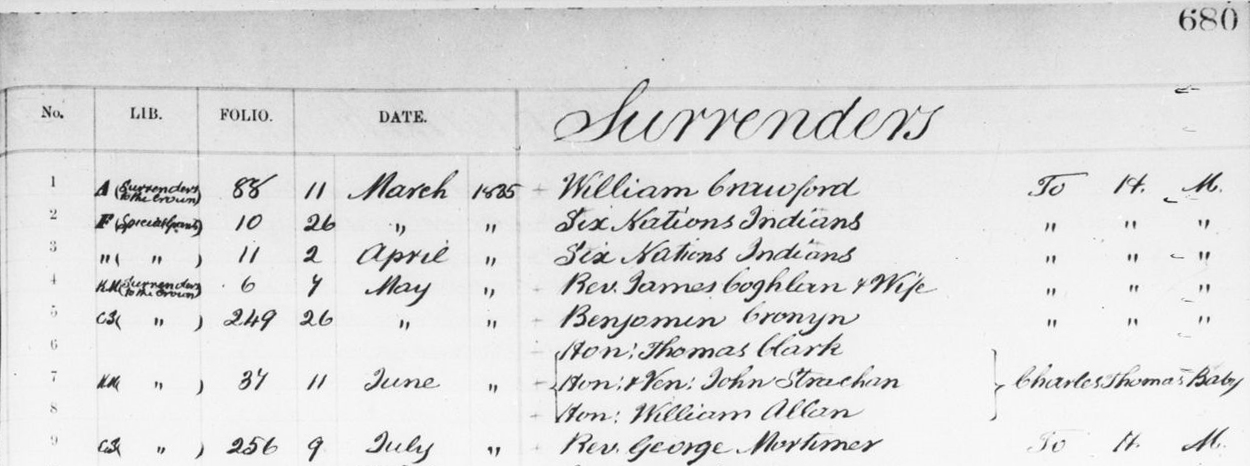 680
No. LIB. FOLIO. DATE. Surrenders
1 A (Surrenders to the Crown) 88 11 March 1835 William Crawford To H. M.
2 F (Special Grants) 10 26 " " Six Nations Indians " " "
3 " ( " ) 11 2 April " Six Nations Indians " " "
4 (Surrenders to the Crown) 6 7 May " Rev. James Coghlan & Wife " " "
5 ( " ) 249 26 " " Benjamin Cronyn " " "
6 Hon: Thomas Clark
7 ( " ) 37 11 June " Hon: & Ven: John Strachan } Charles Thomas Baby
8 Hon: William Allan
9 ( " ) 256 9 July " Rev. George Mortimer To H. M.